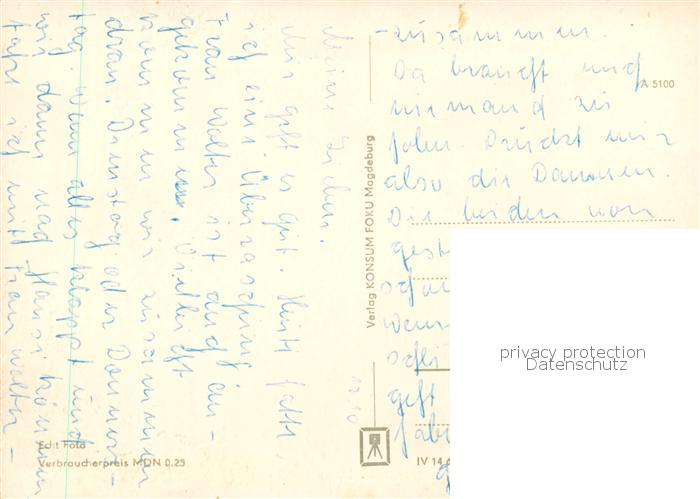 Meine Lieben.
Mir geht es gut. Heute hatte
ich eine Überraschung.
Frau Walter ist auch an-
gekommen. Vielleicht
kommen wir zusammen
dran. Dienstag oder Donners-
tag. Wenn alles klappt und
wir dann nach Hause können
fahre ich mit Frau Walter -
- zusammen.
Da braucht mich
niemand zu
holen. Drückt mir
also die Daumen.
Die beiden von
gest
wenn
geht
habe
17.10
A 5100
Verlag KONSUM FOKU Magdeburg
IV 14
Edit Foto
Verbraucherpreis MDN 0.25
privacy protection
Datenschutz